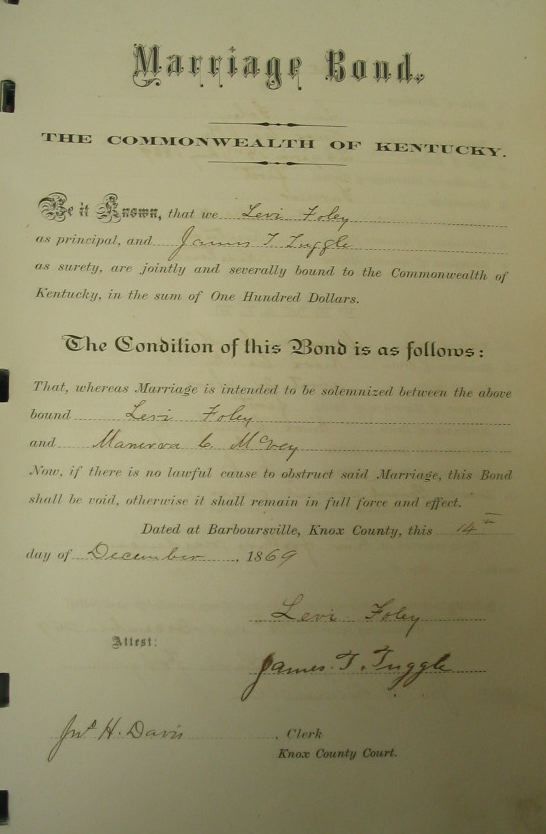 Marriage Bond.
THE COMMONWEALTH OF KENTUCKY.
Be it Known, that we Levi Foley
as principal, and James T. Tuggle
as surety, are jointly and severally bound to the Commonwealth of
Kentucky, in the sum of One Hundred Dollars.
The Condition of this Bond is as follows:
That, whereas Marriage is intended to be solemnized between the above
bound Levi Foley
and Manerva C McVey
Now, if there is no lawful cause to obstruct said Marriage, this Bond
shall be void, otherwise it shall remain in full force and effect.
Dated at Barboursville, Knox County, this 14th
day of December, 1869
Levi Foley
Attest:
James. T. Tuggle
Jno H. Davis, Clerk
Knox County Court.